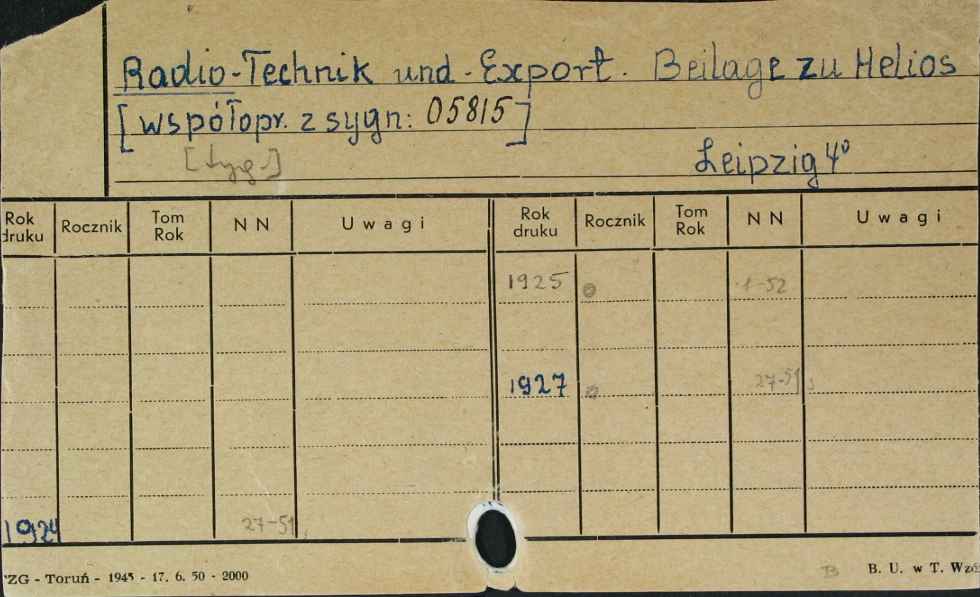 Radio-Technik und-Export. Beilage zu Helios
[współopr. z sygn: 05815]
[tyg.]
Leipzig 4°
Rok druku Rocznik Tom Rok NN Uwagi Rok druku Rocznik Tom Rok NN Uwagi
1925 1-52
1927 27-51
1924 27-51
ZG - Toruń - 1945 - 17. 6. 50 - 2000
B
B. U. w T.